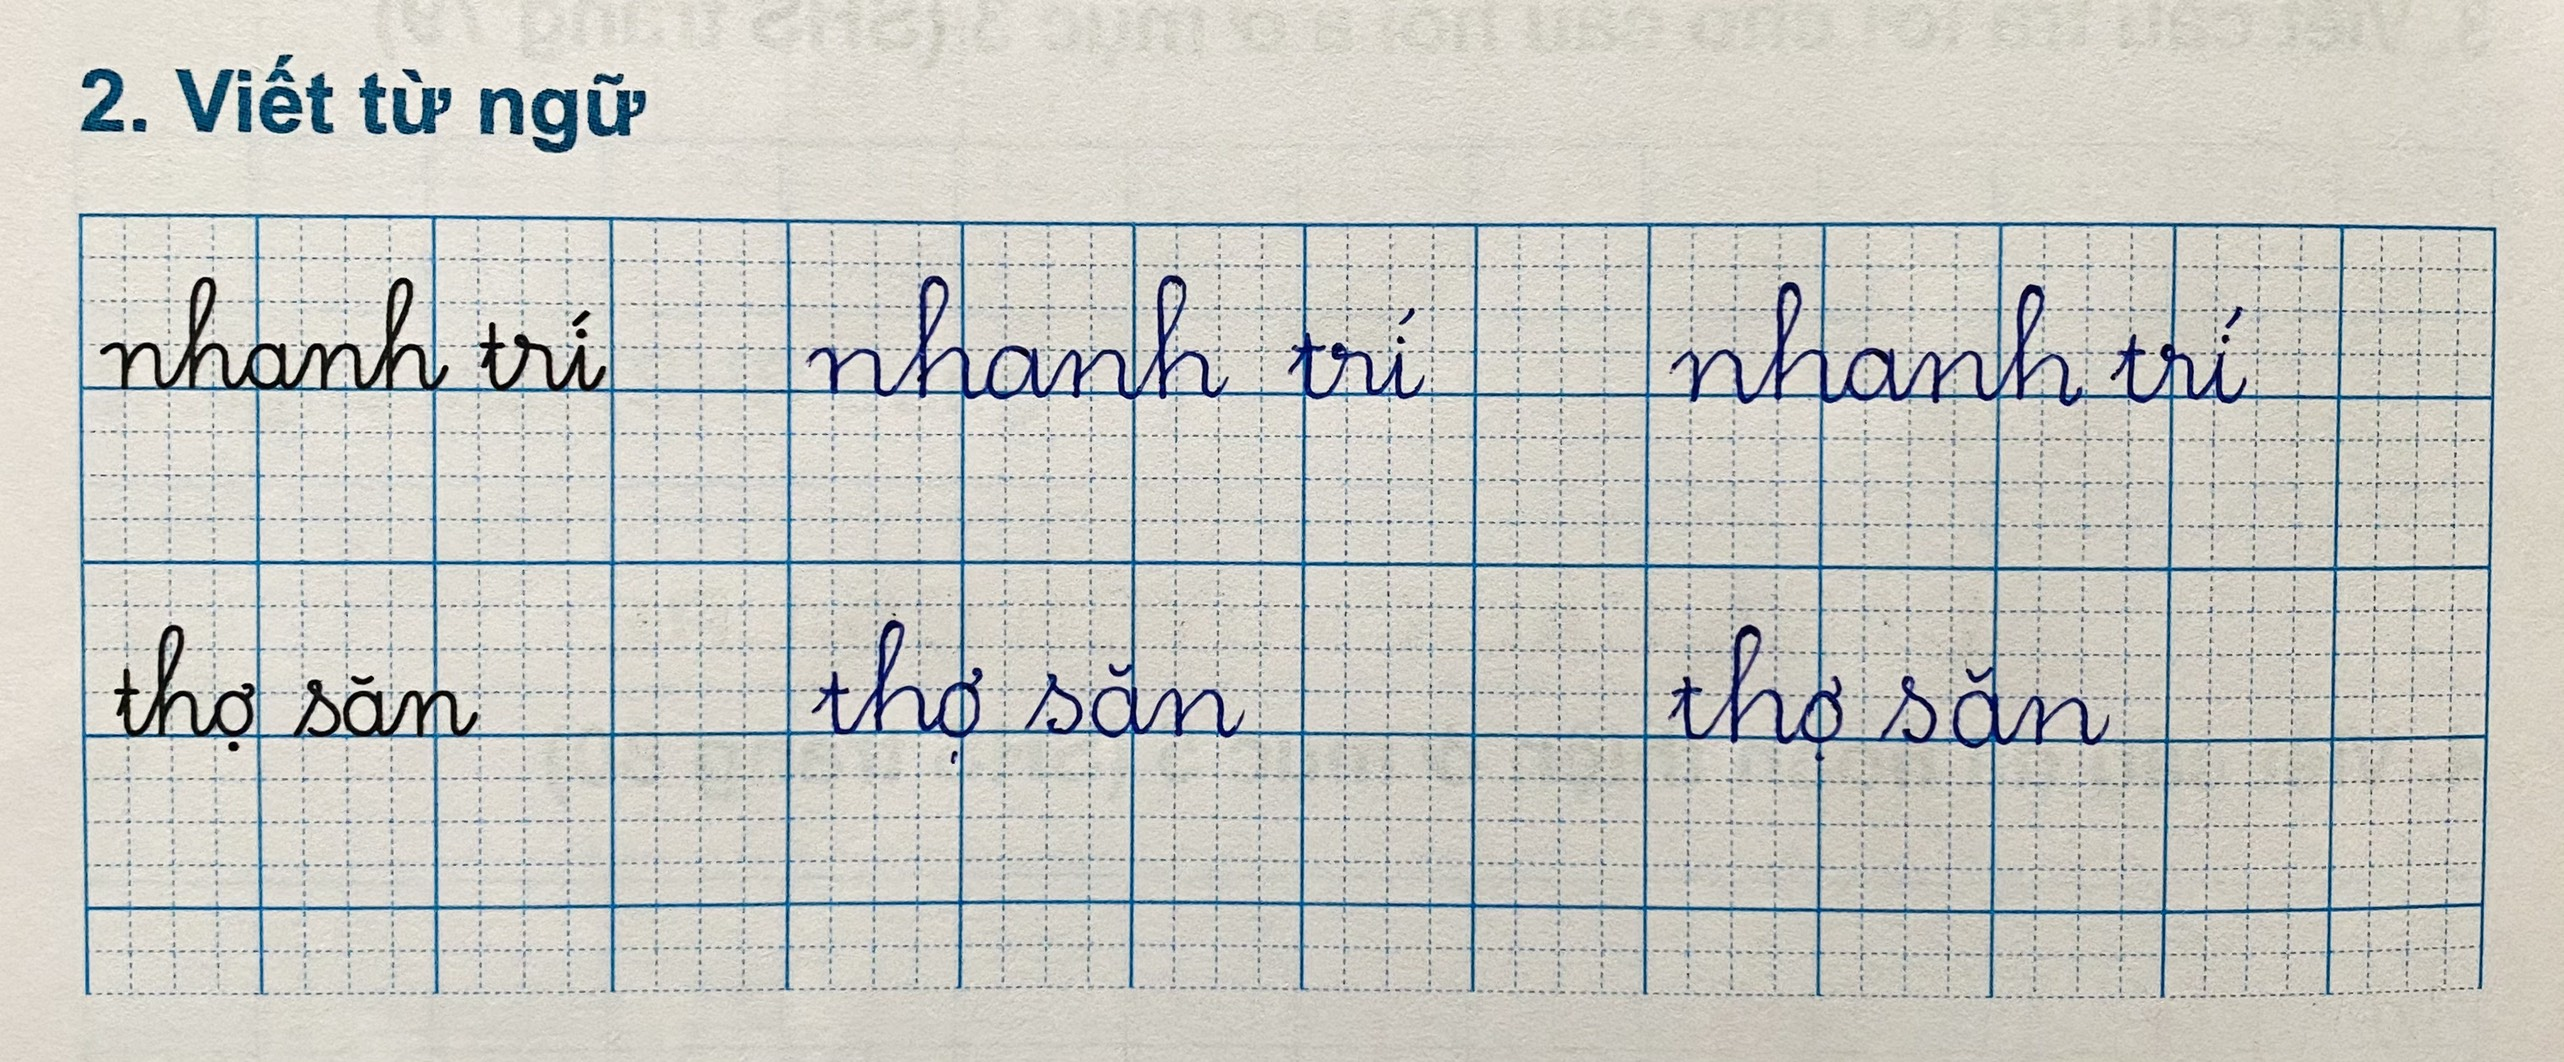 2. Viết từ ngữ
nhanh trí nhanh trí nhanh trí
thợ săn thợ săn thợ săn